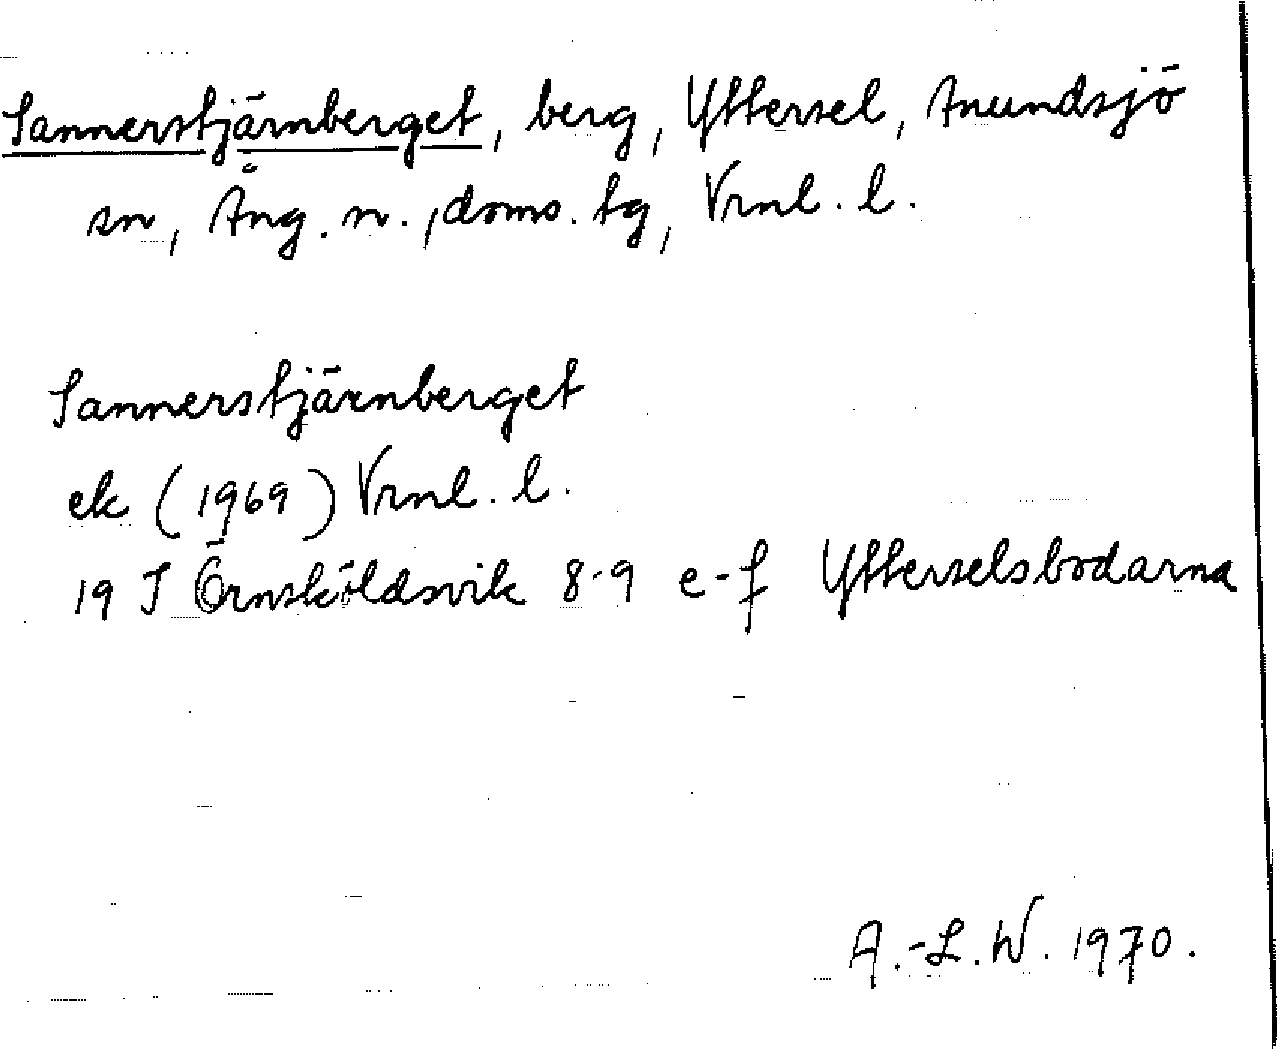 Sannerstjärnberget, berg, Yttersel, Anundsjö
sn, Ång. n., doms. tg, Vrnl. l.
Sannerstjärnberget
ek (1969) Vrnl. l.
19 J Örnsköldsvik 8-9 e-f Ytterselsbodarna
A.-L. W. 1970.